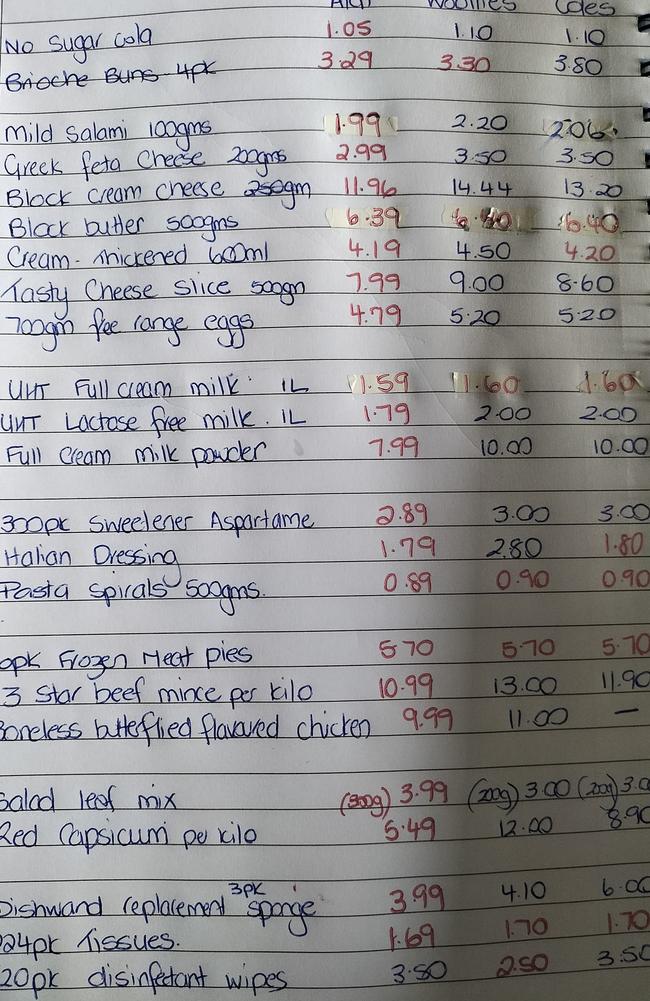 Aldi Woolies Coles
No Sugar cola 1.05 1.10 1.10
Brioche Buns 4pk 3.29 3.30 3.80
Mild Salami 100gms 1.99 2.20 2.06
Greek feta Cheese 200gms 2.99 3.50 3.50
Block cream cheese 250gm 11.96 14.44 13.20
Block butter 500gms 6.39 6.40 6.40
Cream - thickened 600ml 4.19 4.50 4.20
Tasty Cheese Slice 500gm 7.99 9.00 8.60
700gm free range eggs 4.79 5.20 5.20
UHT Full cream milk 1L 1.59 1.60 1.60
UHT Lactose free milk. 1L 1.79 2.00 2.00
Full Cream milk powder 7.99 10.00 10.00
300pk Sweetener Aspartame 2.89 3.00 3.00
Italian Dressing 1.79 2.80 1.80
Pasta spirals 500gms. 0.89 0.90 0.90
pk Frozen Meat pies 5.70 5.70 5.70
3 Star beef mince per kilo 10.99 13.00 11.90
Boneless butteflied flavoured chicken 9.99 11.00 —
Salad leaf mix (300g) 3.99 (200g) 3.00 (200g) 3.0
Red Capsicum per kilo 5.49 12.00 8.90
Dishwand replacement 3pk sponge 3.99 4.10 6.00
224pk Tissues. 1.69 1.70 1.70
20pk disinfectant wipes 3.50 2.50 3.50